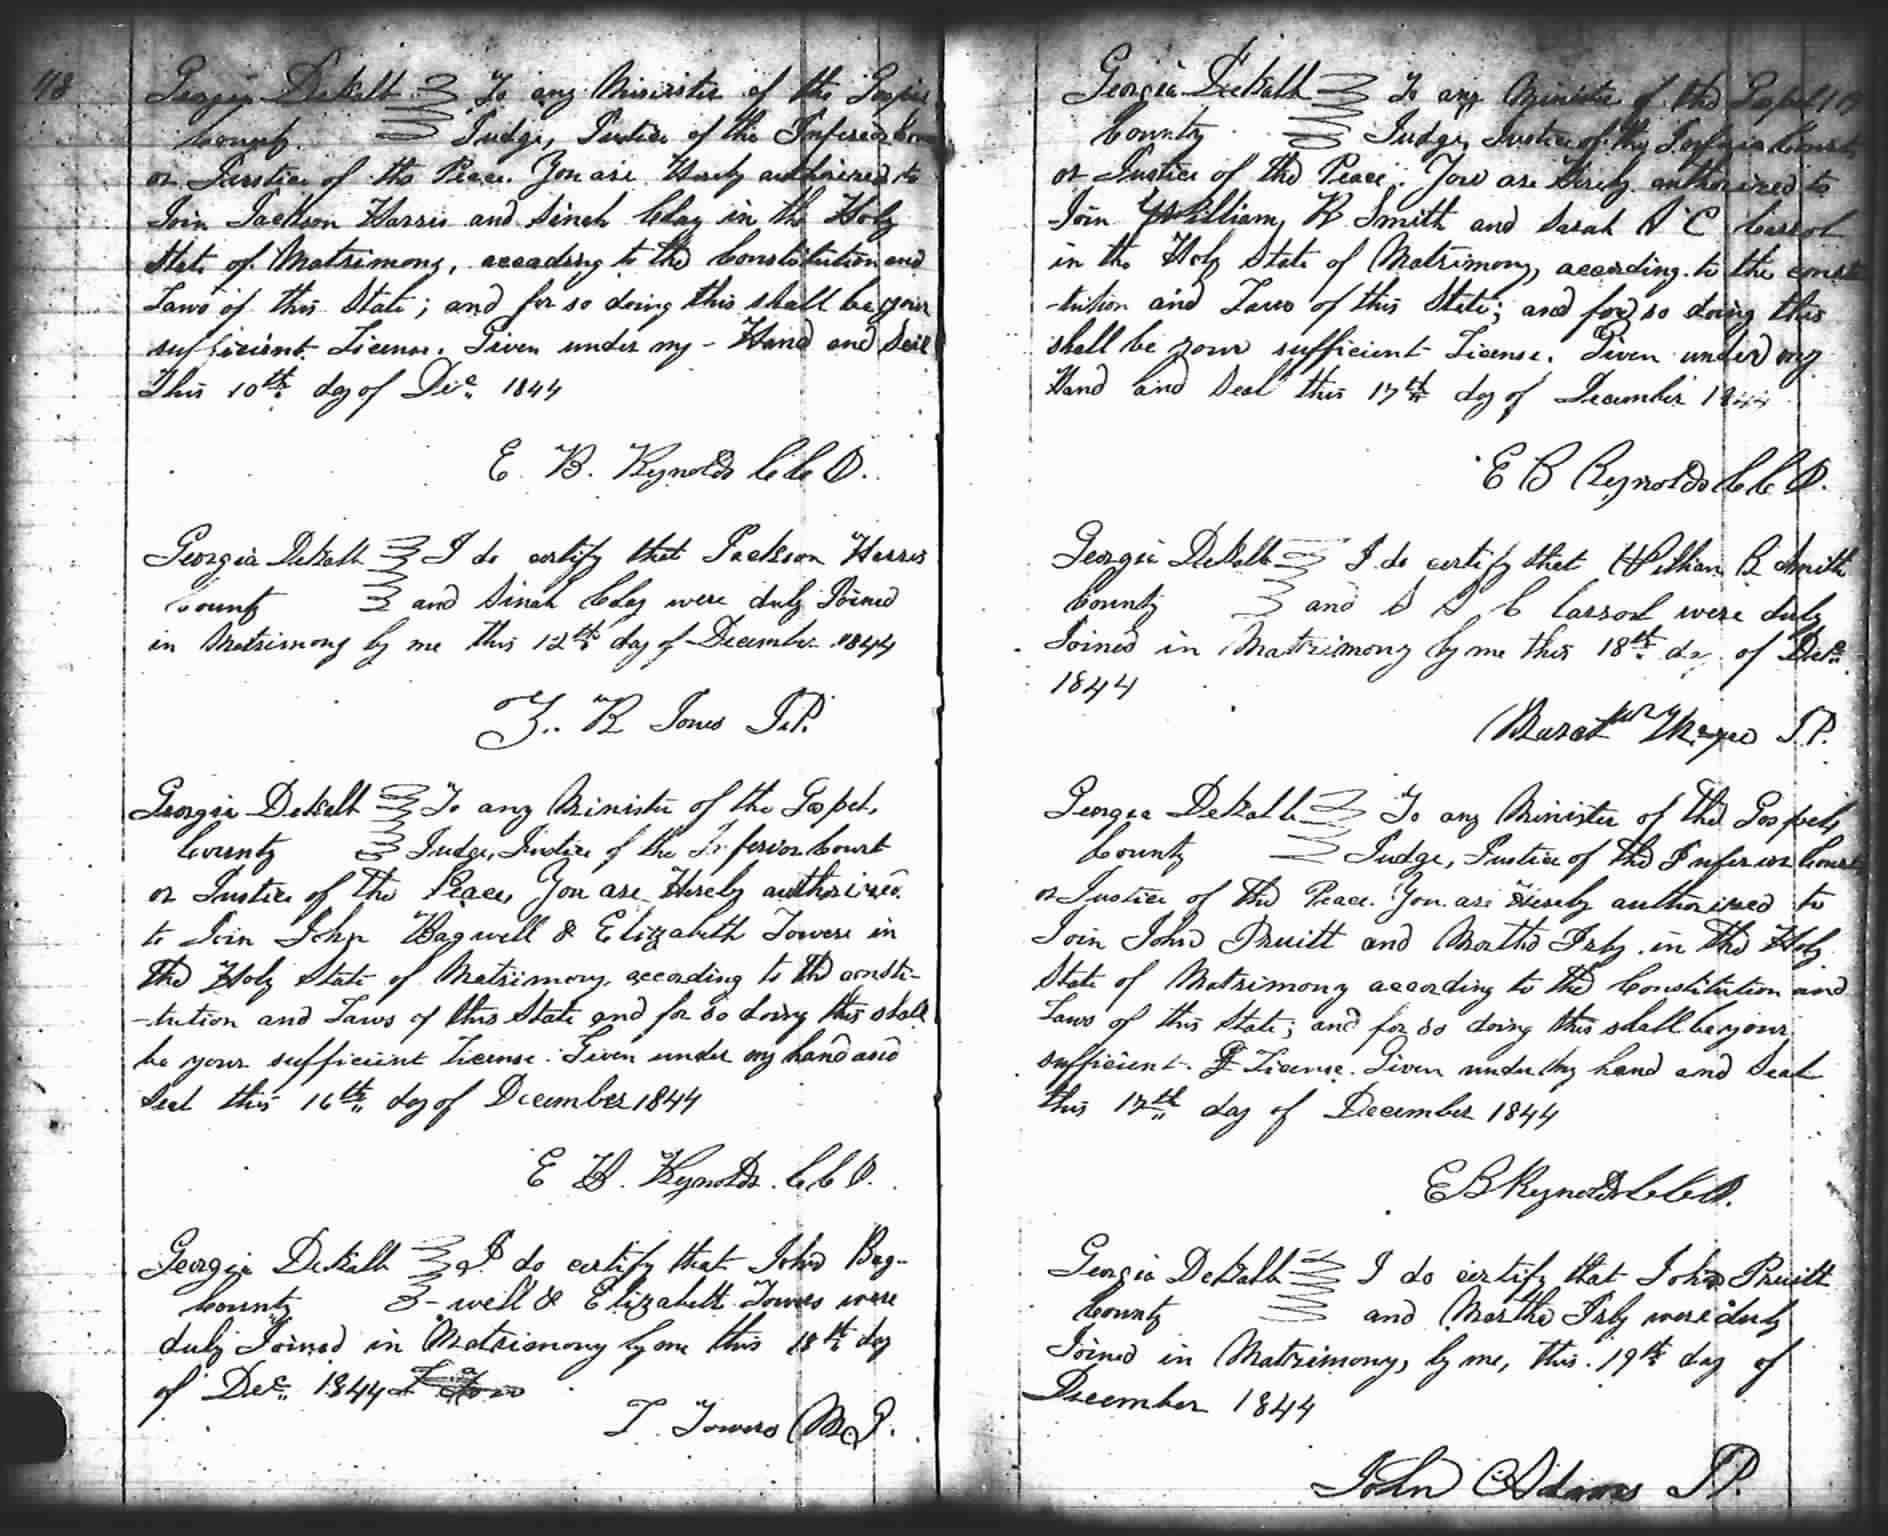 118
Georgia DeKalb To any Minister of the Gospel
County Judge, Justice of the Inferior Court
or Justice of the Peace. You are Hereby authorized to
Join Jackson Harris and Sinah Clay in the Holy
State of Matrimony, according to the Constitution and
Laws of this State; and for so doing this shall be your
sufficient License. Given under my Hand and Seal
This 10th day of Dec. 1844
E. B. Reynolds C C O.
Georgia DeKalb I do certify that Jackson Harris
County and Sinah Clay were duly Joined
in Matrimony by me this 12th day of December 1844
Z. R Jones J.P.
Georgia DeKalb To any Minister of the Gospel,
County Judge, Justice of the Inferior Court
or Justice of the Peace, You are Hereby authorized
to Join John Bagwell & Elizabeth Towers in
the Holy State of Matrimony, according to the consti-
-tution and Laws of this State and for so doing this shall
be your sufficient License. Given under my hand and
Seal this 16th day of December 1844
E B. Reynolds. C C O.
Georgia DeKalb I do certify that John Bag-
County -well & Elizabeth Towers were
duly Joined in Matrimony by me this 18th day
of Dec. 1844
Towers
Georgia DeKalb To any Minister of the Gospel
County Judge, Justice of the Inferior Court
or Justice of the Peace. You are Hereby authorized to
Join William R Smith and Sarah C Carrol
in the Holy State of Matrimony, according to the consti
-tution and Laws of this State; and for so doing this
shall be your sufficient License. Given under my
Hand and Seal this 17th day of December 1844
E B Reynolds C C O.
Georgia DeKalb I do certify that William R Smith
County and S C Carrol were duly
Joined in Matrimony by me this 18th day of Dec.
1844
J.P.
Georgia DeKalb To any Minister of the Gospel,
County Judge, Justice of the Inferior Court
or Justice of the Peace. You are Hereby authorized to
Join John Pruitt and Martha Irby in the Holy
State of Matrimony according to the Constitution and
Laws of this State; and for so doing this shall be your
sufficient License. Given under my hand and Seal
this 17th day of December 1844
E B Reynolds C C O.
Georgia DeKalb I do certify that John Pruitt
County and Martha Irby were duly
Joined in Matrimony, by me, this 19th day of
December 1844
John Adams J.P.